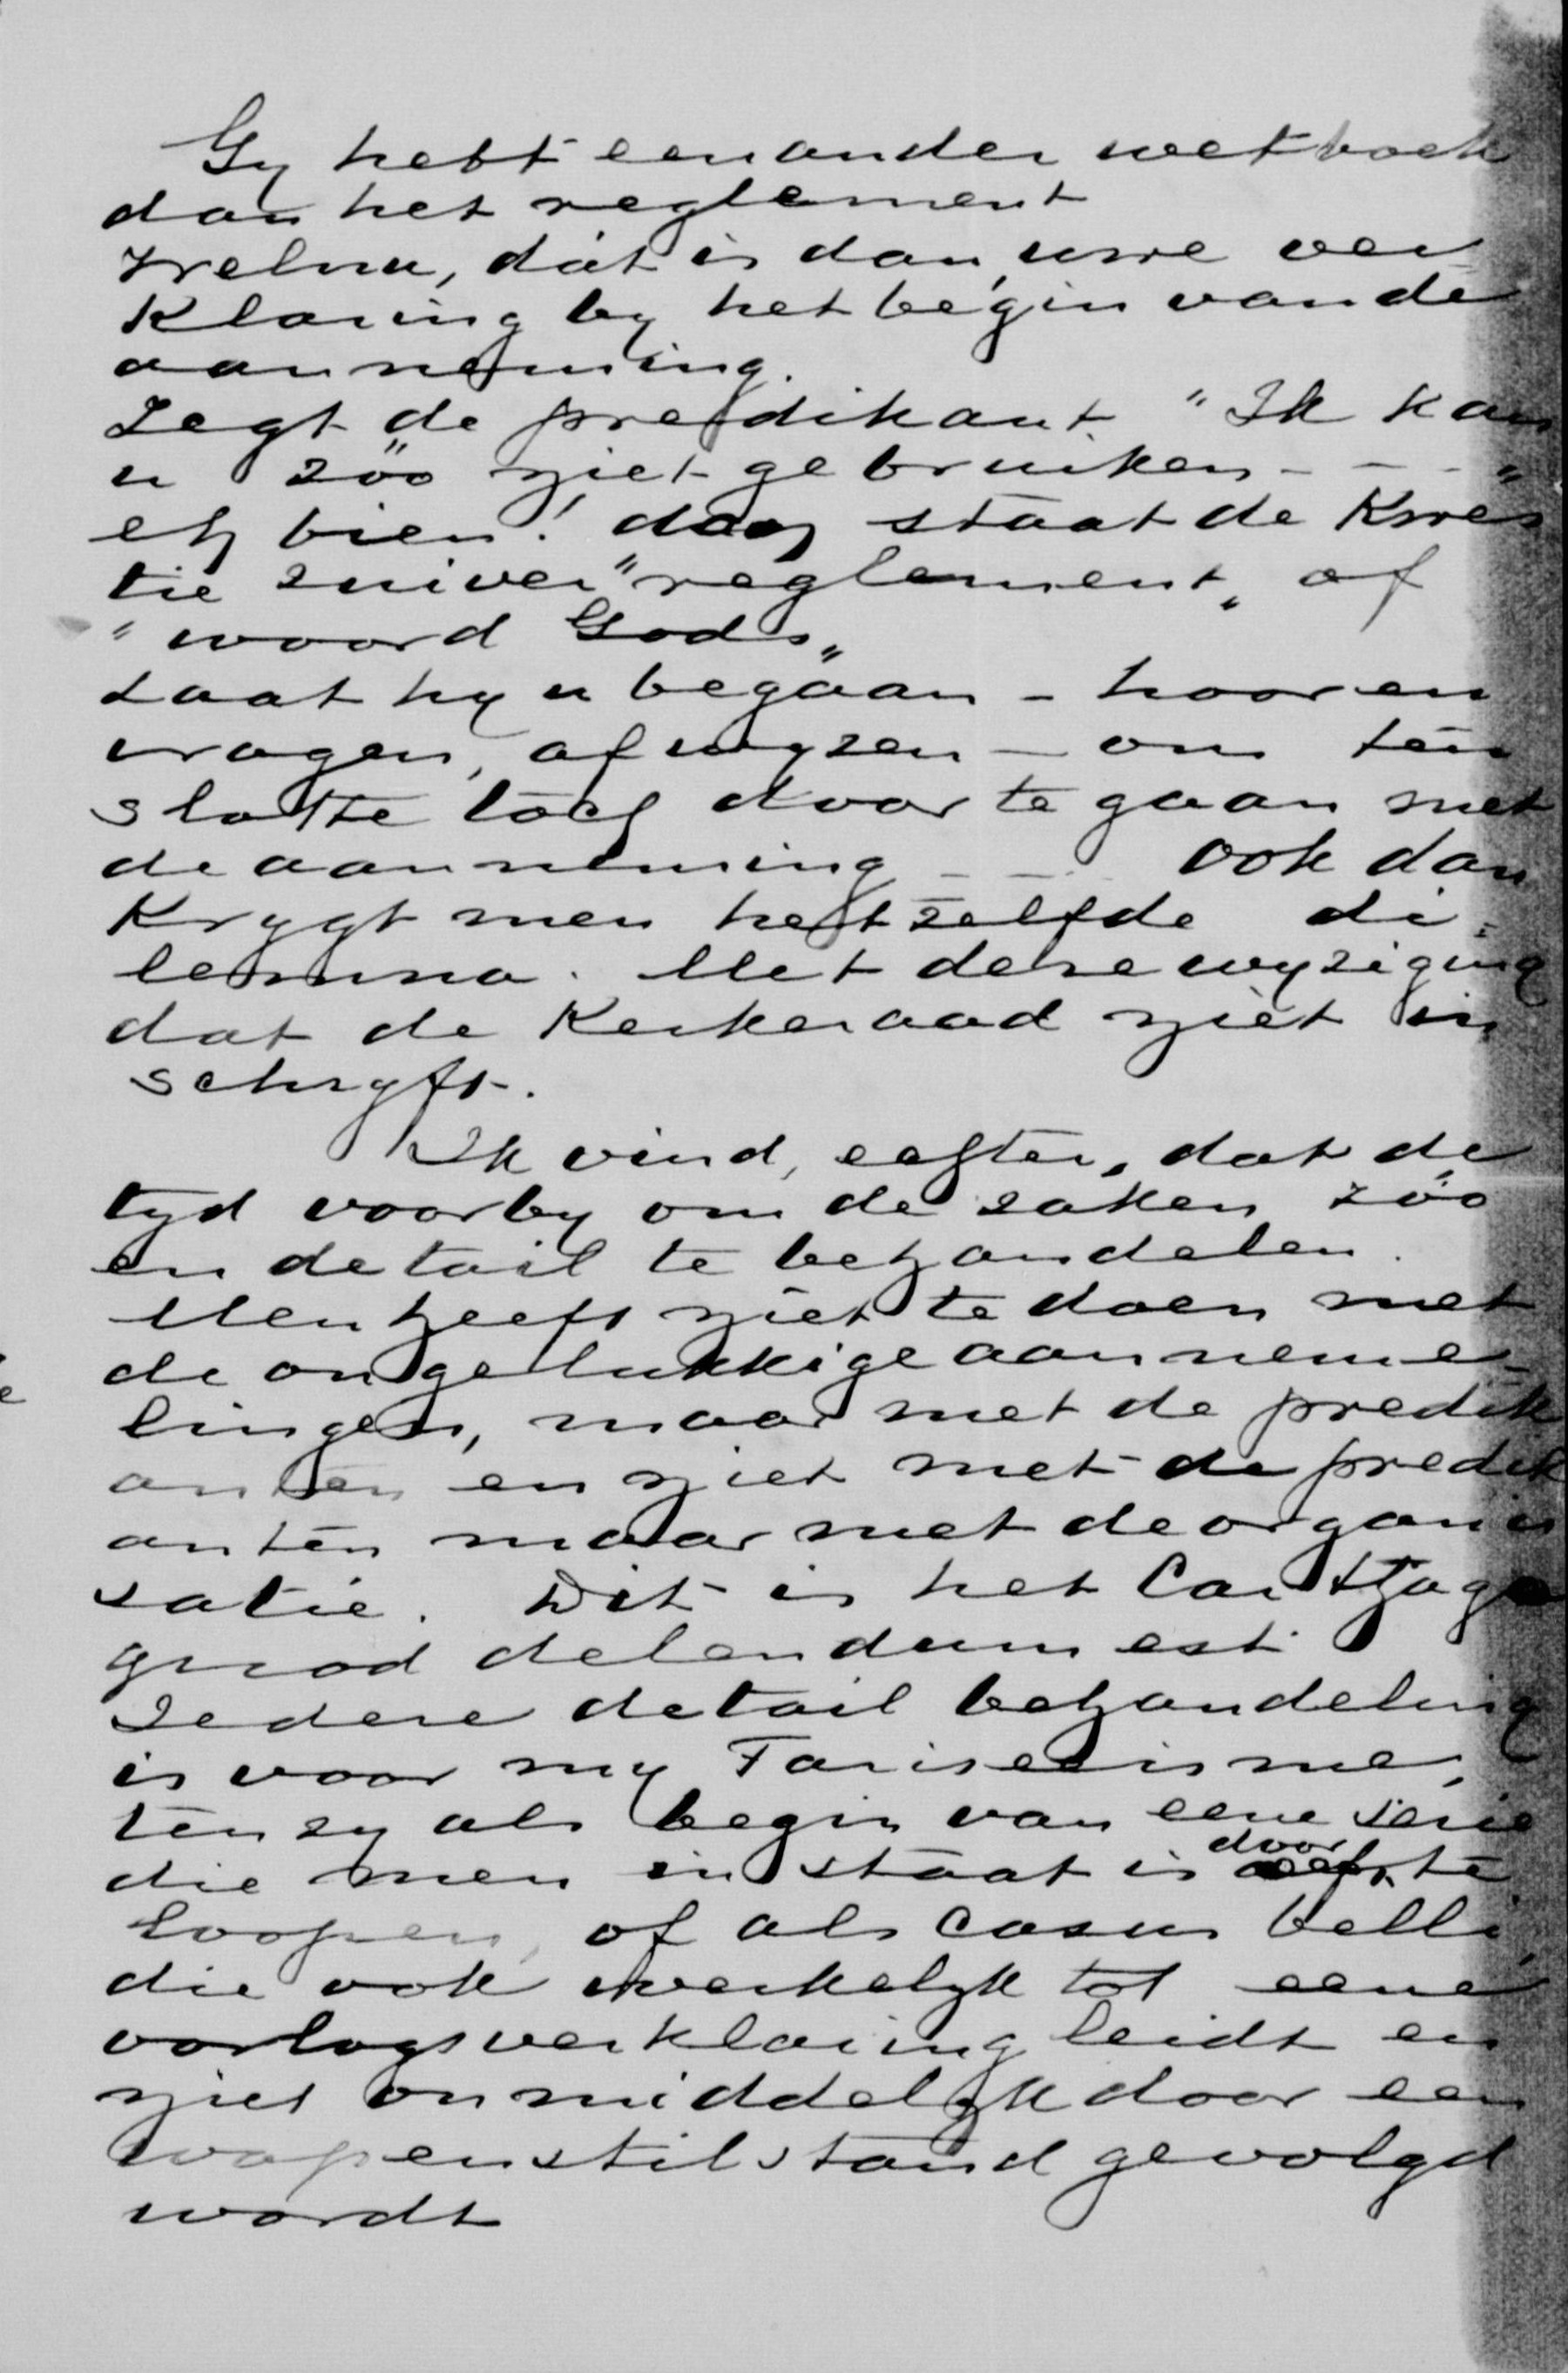 Gy hebt een ander wetboek
dan het reglement
Welnu, dát is dan uwe ver
klaring by het begin van de
aanneming.
Zegt de predikant "Ik kan
u zóó niet gebruiken - - - "
eh bien! dan staat de kwes
tie zuiver "reglement" of
"woord Gods"
Laat hy u begaan - hooren
vragen, afwyzen - om ten
slotte toch door te gaan met
de aanneming - - - ook dan
krygt men hetzelfde di-
lemma. Met deze wyziging
dat de Kerkeraad niet in
schryft.
Ik vind, echter, dat de
tyd voorby om de zaken zóó
en detail te behandelen.
Men heeft niet te doen met
de ongelukkige aanneme-
lingen, maar met de predik
anten en niet met de predik
anten maar met de organi
satie. Dit is het Carthago
quod delendum est
Iedere detail behandeling
is voor my Fariseeisme,
tenzy als begin van eene serie
die men in staat is door te
loopen, of als casus belli,
die ook werkelyk tot eene
oorlogsverklaring leidt en
niet onmiddelyk door een
wapenstilstand gevolgd
wordt